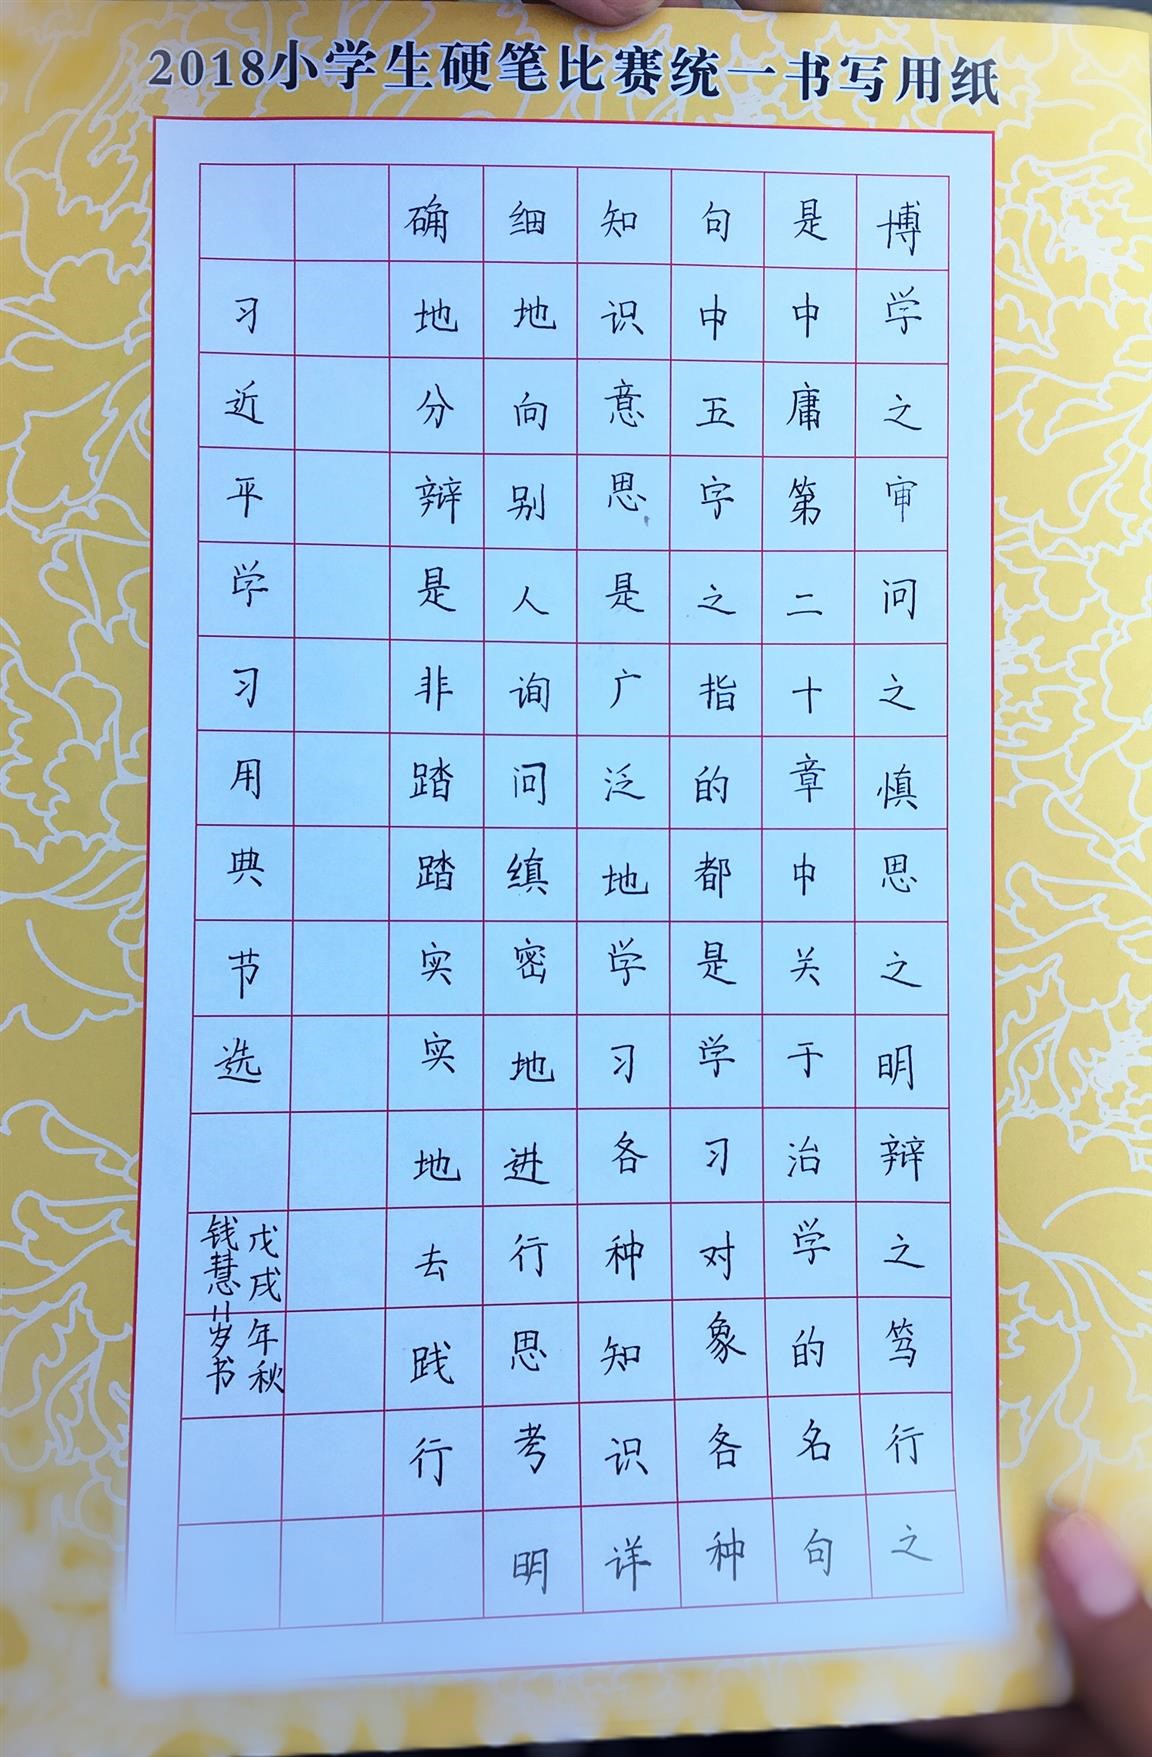 2018小学生硬笔比赛统一书写用纸
博学之审问之慎思之明辩之笃行之
是中庸第二十章中关于治学的名句
句中五字之指的都是学习对象各种
知识意思是广泛地学习各种知识详
细地向别人询问缜密地进行思考明
确地分辩是非踏踏实实地去践行
习近平学习用典节选
戊戌年秋
钱慧11岁书